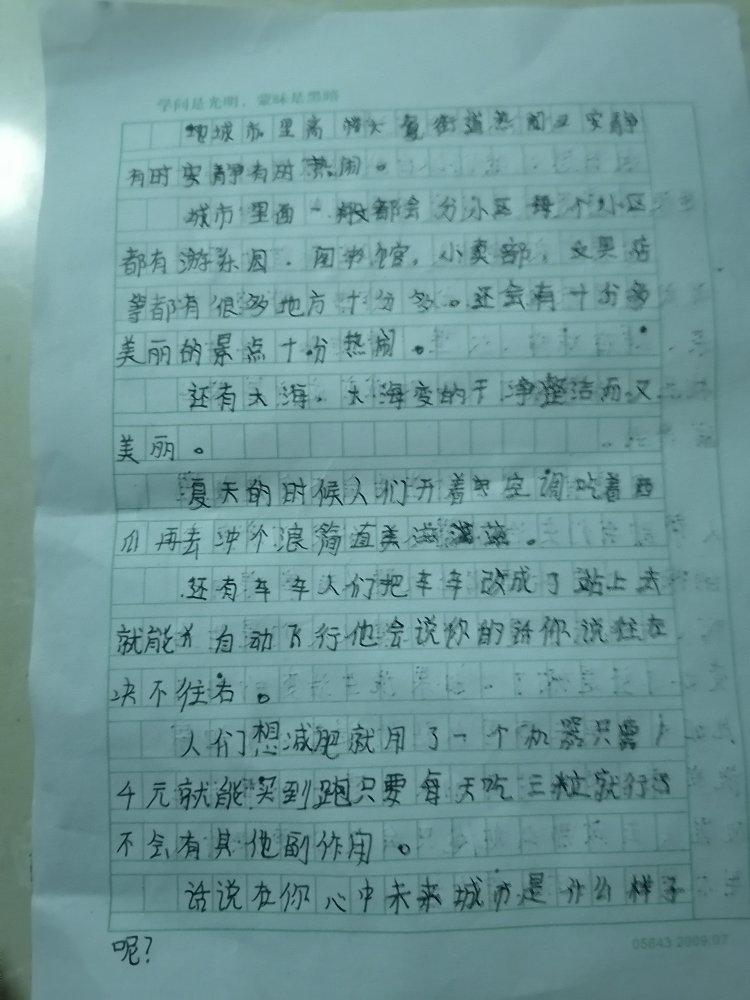 学问是光明，蒙昧是黑暗
城市里高楼大厦街道热闹又安静
有时安静有时热闹。
城市里面一般都会分小区每个小区
都有游乐园．图书馆，小卖部，文具店
等都有很多地方十分多。还会有十分多
美丽的景点十分热闹。
还有大海，大海变的干净整洁而又
美丽。
夏天的时候人们开着空调吃着西
瓜再去冲个浪简直美滋滋滋。
还有车车人们把车车改成了站上去
就能自动飞行他会说你的话你说往左
决不往右。
人们想减肥就用了一个机器只需
4元就能买到跑只要每天吃三粒就行
不会有其他副作用。
话说在你心中未来城市是什么样子
呢？
05643 2009.07